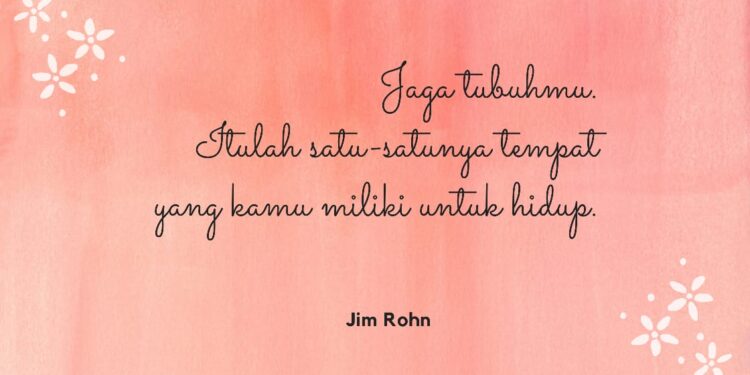 Jaga tubuhmu.
Itulah satu-satunya tempat
yang kamu miliki untuk hidup.
Jim Rohn